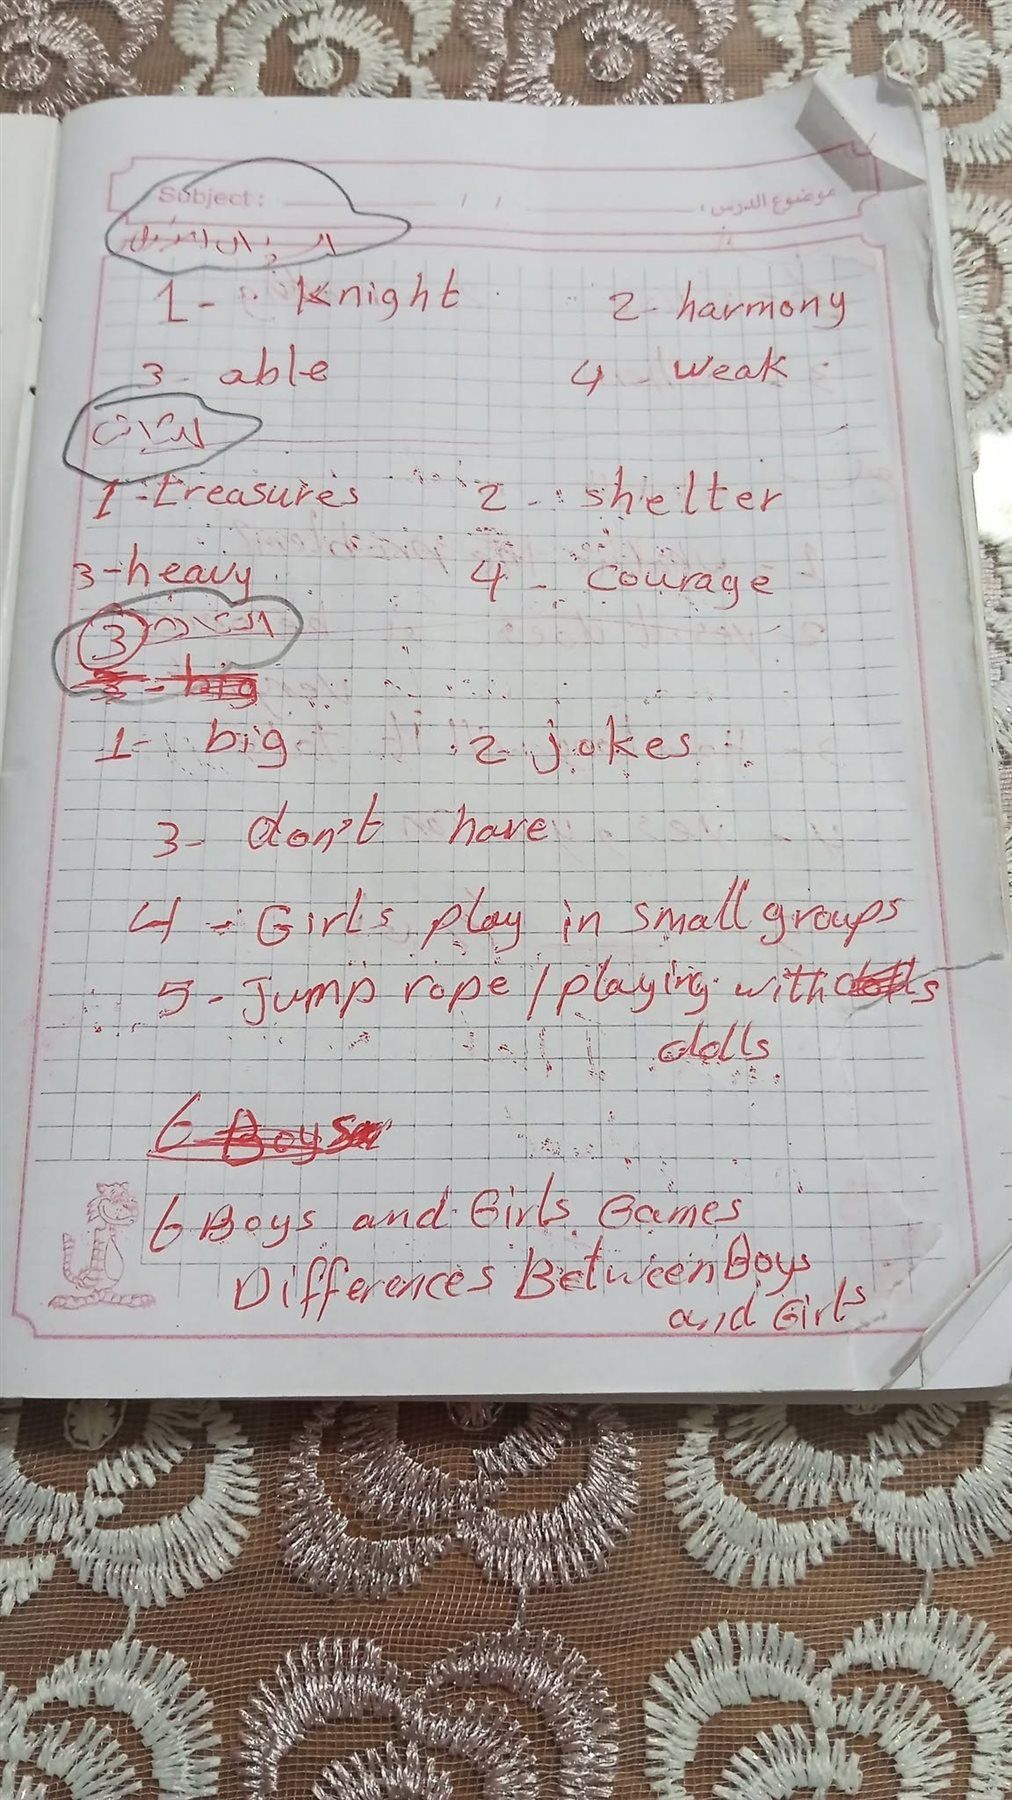 Subject: موضوع الدرس:
السؤال الاول
1- Knight 2- harmony
3- able 4- weak
الثاني
1- treasures 2- shelter
3- heavy 4- courage
3 الثالث
3- big
1- big 2- jokes
3- don't have
4- Girls play in small groups
5- Jump rope / playing with dolls
dolls
6 Boys
6 Boys and Girls Games
Differences Between Boys
and Girls